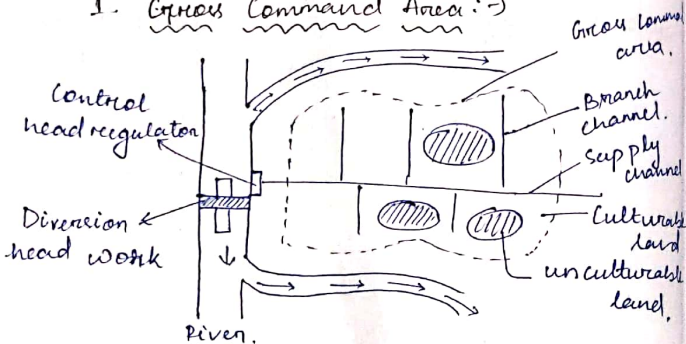 1. Gross Command Area :-
Gross Command
area.
Control
head regulator
Branch
channel.
Supply
channel
Diversion
head work
Culturable
land
unculturable
land.
River.